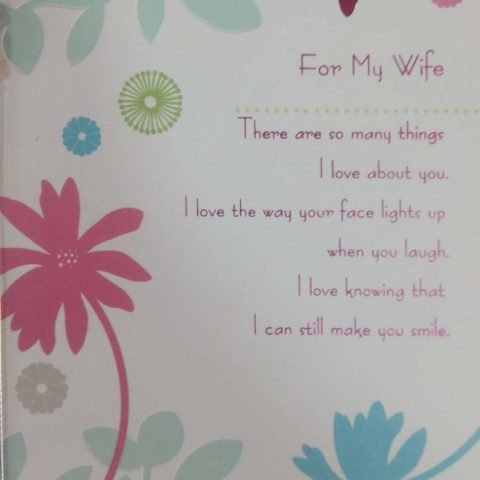 For My Wife
There are so many things
I love about you.
I love the way your face lights up
when you laugh.
I love knowing that
I can still make you smile.